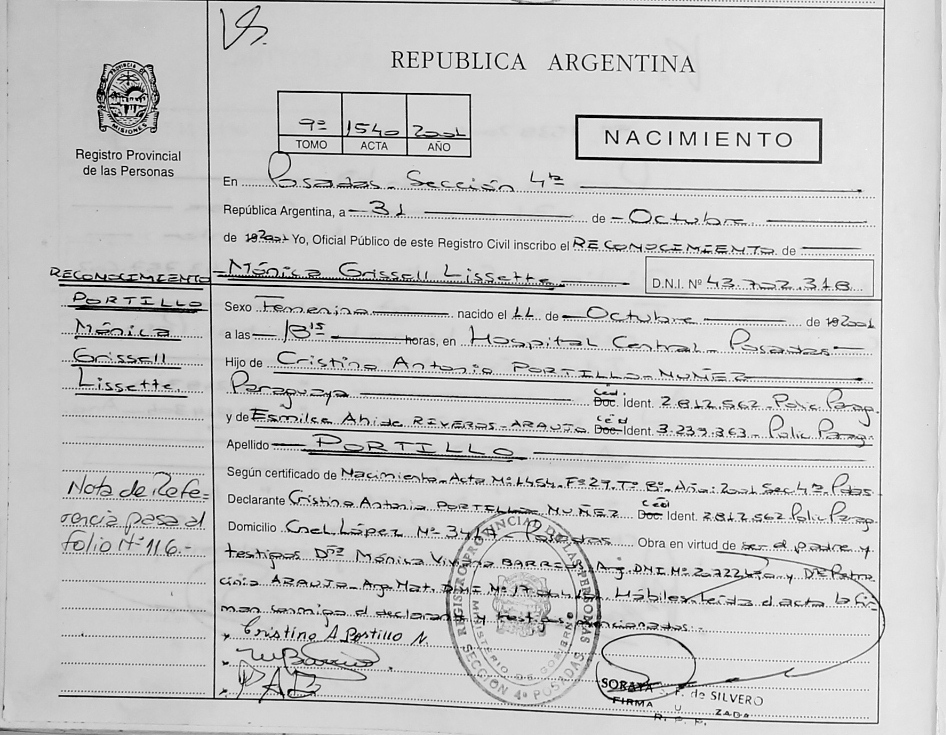 REPUBLICA ARGENTINA
PROVINCIA DE MISIONES
Registro Provincial
de las Personas
9º 1540 2001
TOMO ACTA AÑO
NACIMIENTO
En Posadas - Sección 4ta
República Argentina, a 31 de Octubre
de 2001 Yo, Oficial Público de este Registro Civil inscribo el RECONOCIMIENTO de
Mónica Grissell Lissette
D.N.I. Nº 43.702.318
RECONOCIMIENTO
PORTILLO
Mónica
Grissell
Lissette
Nota de Refe=
rencia pasa al
folio Nº 116.-
Sexo Femenino nacido el 11 de Octubre de 2001
a las 18 15 horas, en Hospital Central - Posadas
Hijo de Cristino Antonio PORTILLO - NUÑEZ
Paraguaya Céd Doc. Ident. 2.812.562 - Polic Parag.
y de Esmilce Ahide RIVEROS - ARAUJO Céd Doc. Ident. 3.239.363 - Polic Parag.
Apellido PORTILLO
Según certificado de Nacimiento - Acta Nº 1454 - Fº 29 - Tº 8º - Año: 2001 Sec 4ta Pdas
Declarante Cristino Antonio PORTILLO NUÑEZ Céd Doc. Ident. 2.812.562 Polic Parag
Domicilio Cnel. López Nº Posadas Obra en virtud de ser el padre y
testigos Dña Mónica Viviana Arg. DNI Nº y Dña Patri
cinia ARAUJO - Arg. Nat. DNI Nº 17 Hábiles - leída el acta la fir=
man conmigo el declarante y testigos mencionados.-
Cristino A Portillo N.
REGISTRO PROVINCIAL DE LAS PERSONAS
MINISTERIO DE GOBIERNO
SECCIÓN 4ª POSADAS
SORAYA F. de SILVERO
FIRMA
R. P. P.